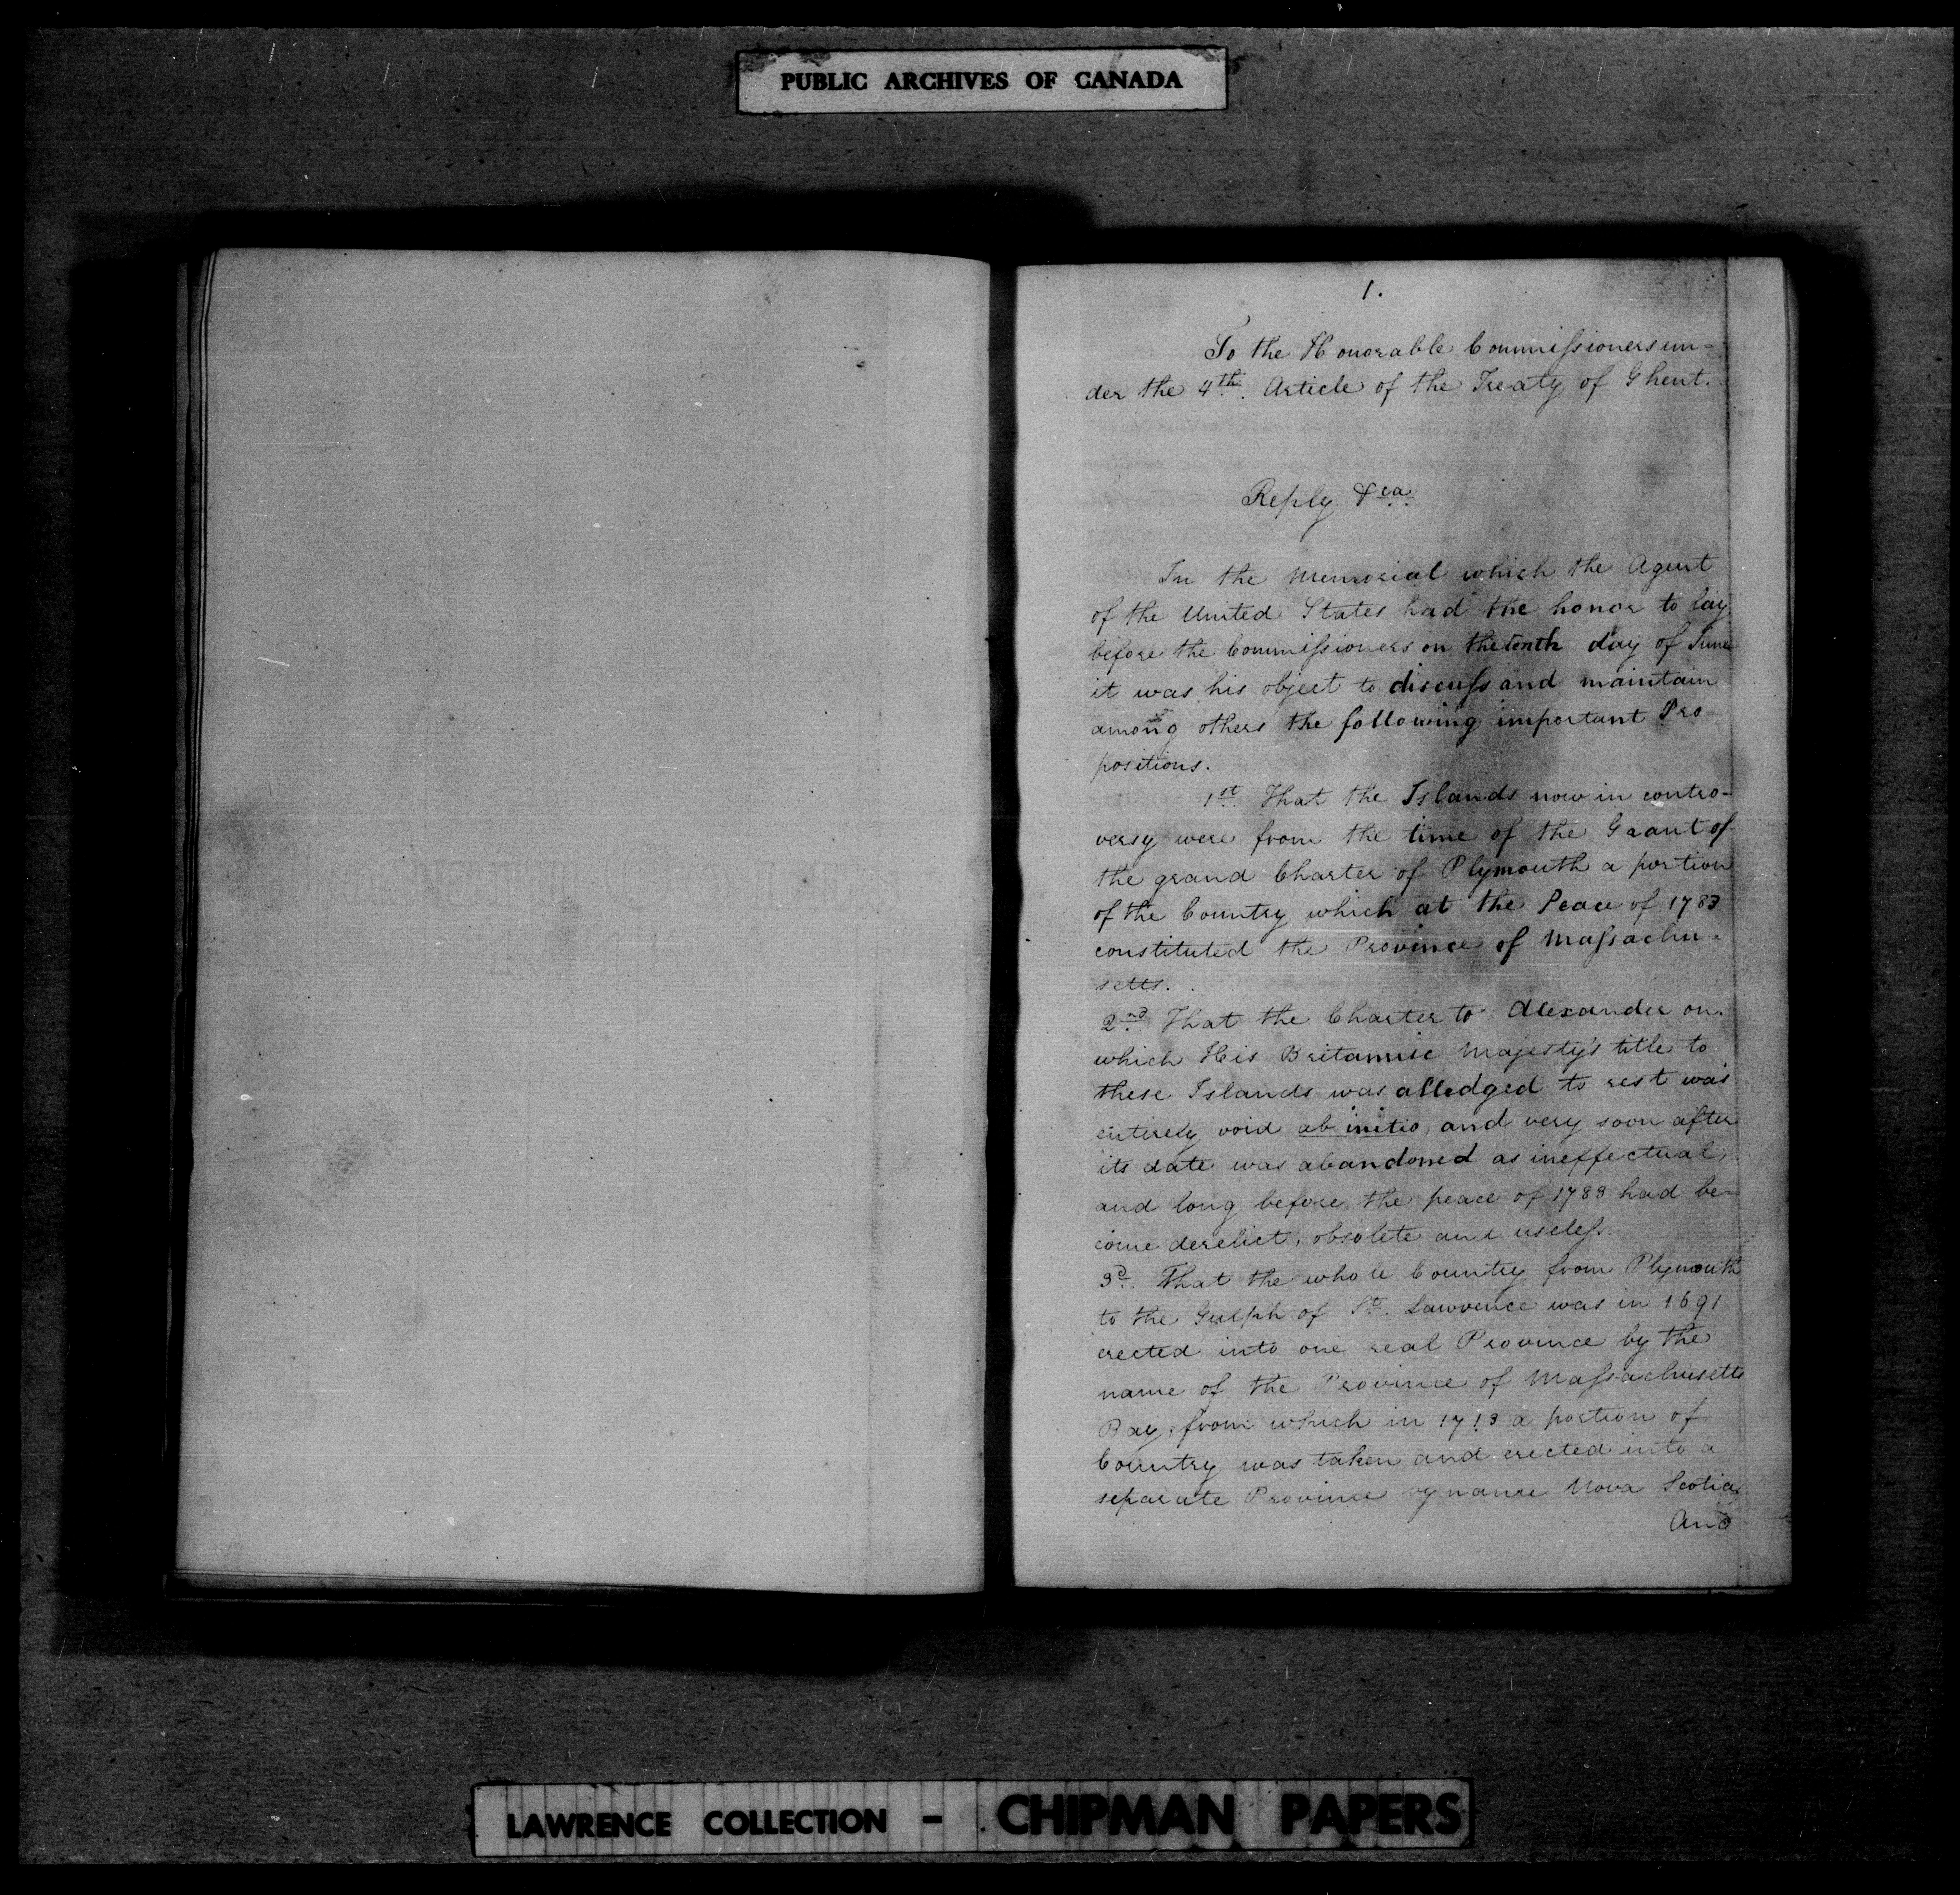 PUBLIC ARCHIVES OF CANADA
1.
To the Honorable Commissioners un-
der the 4th. Article of the Treaty of Ghent.
Reply &ca.
In the Memorial which the Agent
of the United States had the honor to lay
before the Commissioners on the tenth day of June
it was his object to discuss and maintain
among others the following important Pro-
positions.
1st. That the Islands now in contro-
versy were from the time of the Grant of
the grand Charter of Plymouth a portion
of the Country which at the Peace of 1783
constituted the Province of Massachu-
setts.
2nd. That the Charter to Alexander on
which His Britannic Majesty's title to
these Islands was alledged to rest was
entirely void ab initio, and very soon after
its date was abandoned as ineffectual,
and long before the peace of 1783 had be-
come derelict, obsolete and useless.
3d. That the whole Country from Plymouth
to the Gulph of St. Lawrence was in 1691
erected into one real Province by the
name of the Province of Massachusetts
Bay, from which in 1713 a portion of
Country was taken and erected into a
separate Province by name Nova Scotia
And
LAWRENCE COLLECTION - CHIPMAN PAPERS